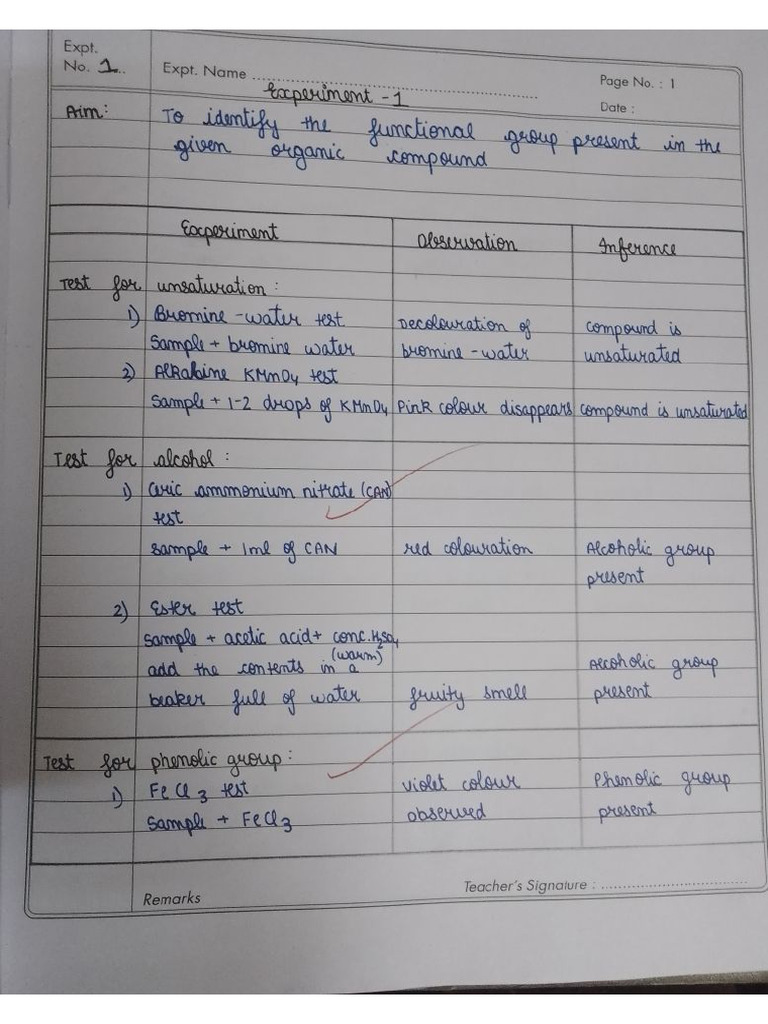 Expt.
No. 1
Expt. Name
Experiment - 1
Page No. : 1
Date :
Aim: To identify the functional group present in the
given organic compound
Experiment Observation Inference
Test for unsaturation :
1) Bromine - water test Decolouration of compound is
Sample + bromine water bromine - water unsaturated
2) Alkaline KMnO4 test
Sample + 1-2 drops of KMnO4 Pink colour disappears compound is unsaturated
Test for alcohol :
1) Ceric ammonium nitrate (CAN)
test
sample + 1ml of CAN red colouration Alcoholic group
present
2) Ester test
sample + acetic acid + conc. H2SO4
(warm)
add the contents in a Alcoholic group
beaker full of water fruity smell present
Test for phenolic group :
1) FeCl3 test violet colour Phenolic group
Sample + FeCl3 observed present
Remarks
Teacher's Signature :